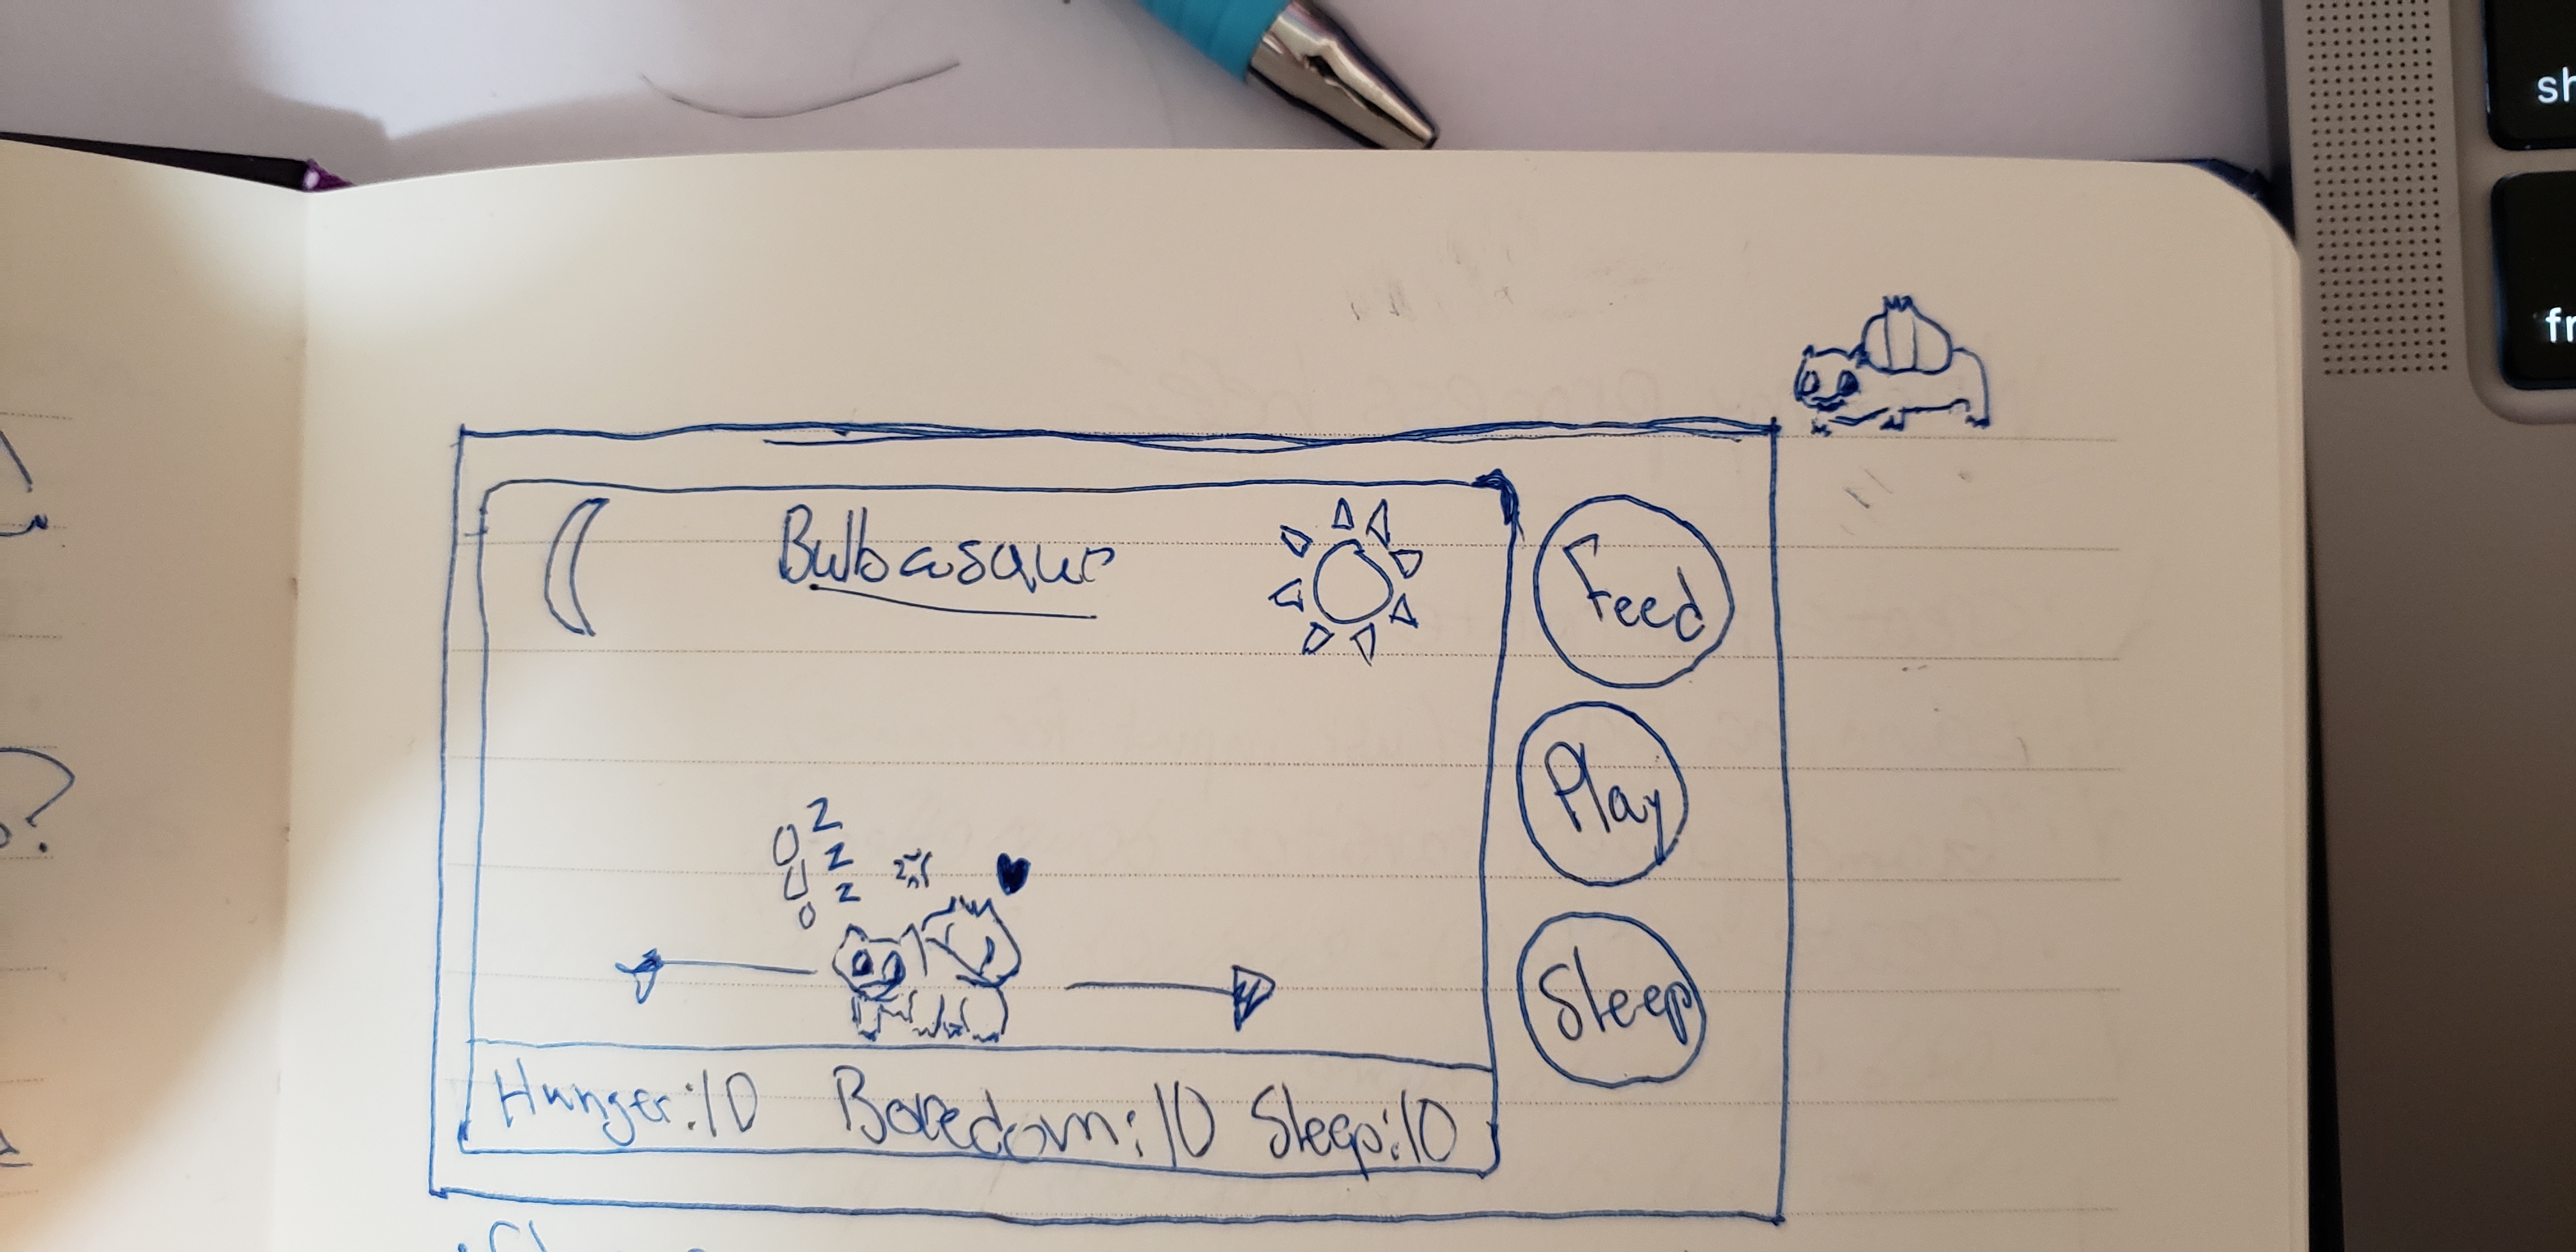 Bulbasaur
Feed
Play
Sleep
z
z
z
Hunger:10 Boredom:10 Sleep:10
sh
?